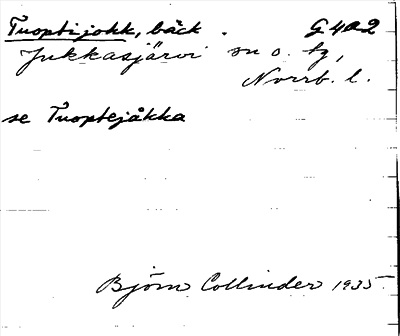 Tuoptijokk, bäck . G4a2
Jukkasjärvi sn o. tg,
Norrb. l.
se Tuoptejåkka
Björn Collinder 1935